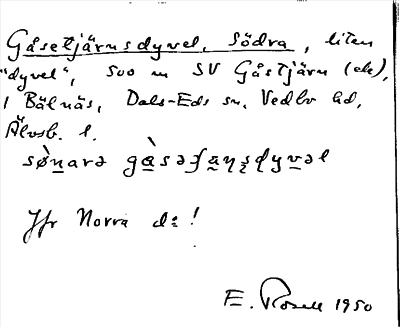 Gåsetjärnsdyvel, Södra, liten
"dyvel", 500 m SV Gåstjärn (ek),
i Bälnäs, Dals-Eds sn, Vedbo hd,
Älvsb. l.
sø̀naraə gàsəʃæɳʂɖyvəl
Jfr Norra d:o!
E. Rosell 1950